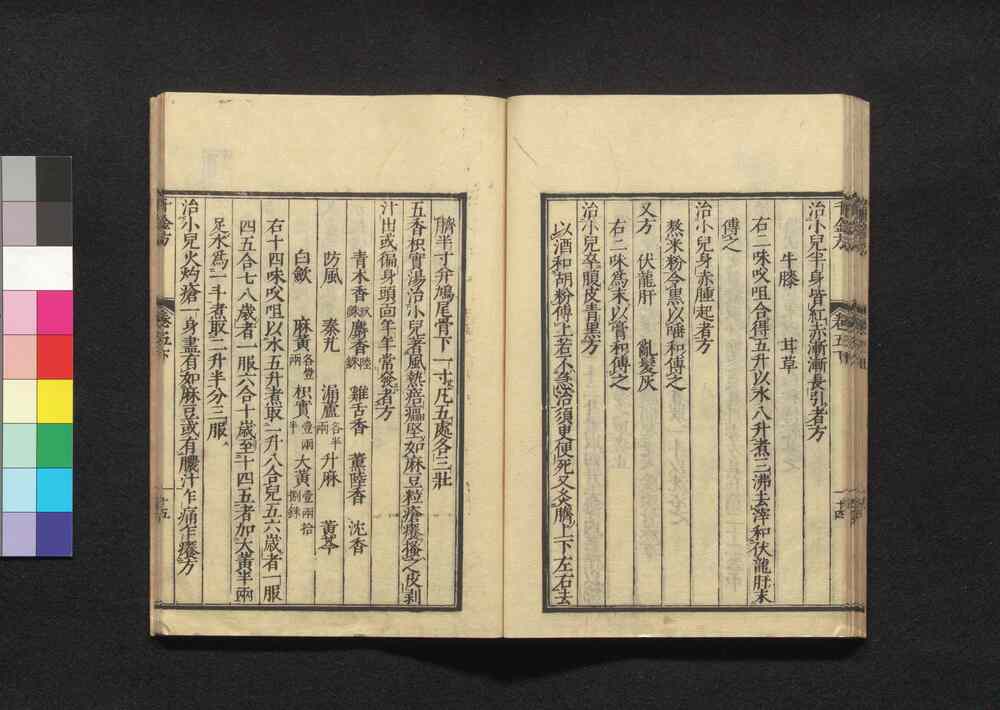 千金方　卷五下
治小兒半身皆紅赤漸漸長引者方
牛膝　甘草
右二味㕮咀合得五升以水八升煮三沸去滓和伏龍肝末
傅之
治小兒身赤腫起者方
熬米粉令黒以唾和傅之
又方　伏龍肝　亂髮灰
右二味爲末以膏和傅之
治小兒卒腹皮青黒方
以酒和胡粉傅上若不急治須更便死又灸臍上下左右去
臍半寸并鳩尾骨下一寸凡五處各三壯
五香枳實湯治小兒著風熱㾦㿔堅如麻豆粒瘡癢搔之皮剥
汁出或徧身頭面年年常發者方
青木香 麝香 雞舌香　薰陸香　沈香
防風　秦艽　漏蘆 各半兩 升麻　黄芩
白歛　麻黄 各壹兩 枳實 壹兩半 大黄 壹兩拾捌銖
右十四味㕮咀以水五升煮取一升八合兒五六歲者一服
四五合七八歲者一服六合十歲至十四五者加大黄半兩
足水爲一斗煮取二升半分三服
治小兒火灼瘡一身盡有如麻豆或有膿汁乍痛乍癢方
千金方　卷五下